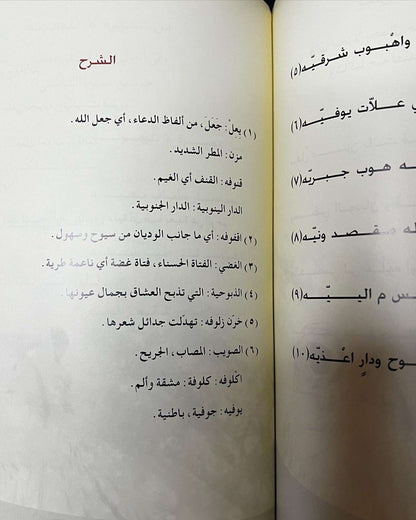 واهْبوب شرقيّه(٥)
علاّت يوفيّه(٦)
هوب جبريّه(٧)
له مقصد ونيّه(٨)
س م اليـّه(٩)
وح ودارٍ اعْذيّه(١٠)
الشرح
(١) يعلْ: جَعَلَ، من ألفاظ الدعاء، أي جعل الله.
مزن: المطر الشديد.
قنوفه: القنف أي الغيم.
الدار الينوبية: الدار الجنوبية.
(٢) اقفوفه: أي ما جانب الوديان من سيوح وسهول.
(٣) الغضي: الفتاة الحسناء، فتاة غضة أي ناعمة طرية.
(٤) الذبوحية: التي تذبح العشاق بجمال عيونها.
(٥) خرّن زلوفه: تهدّلت جدائل شعرها.
(٦) الصويب: المصاب، الجريح.
اكْلوفه: كلوفة: مشقة وألم.
يوفيه: جوفية، باطنية.